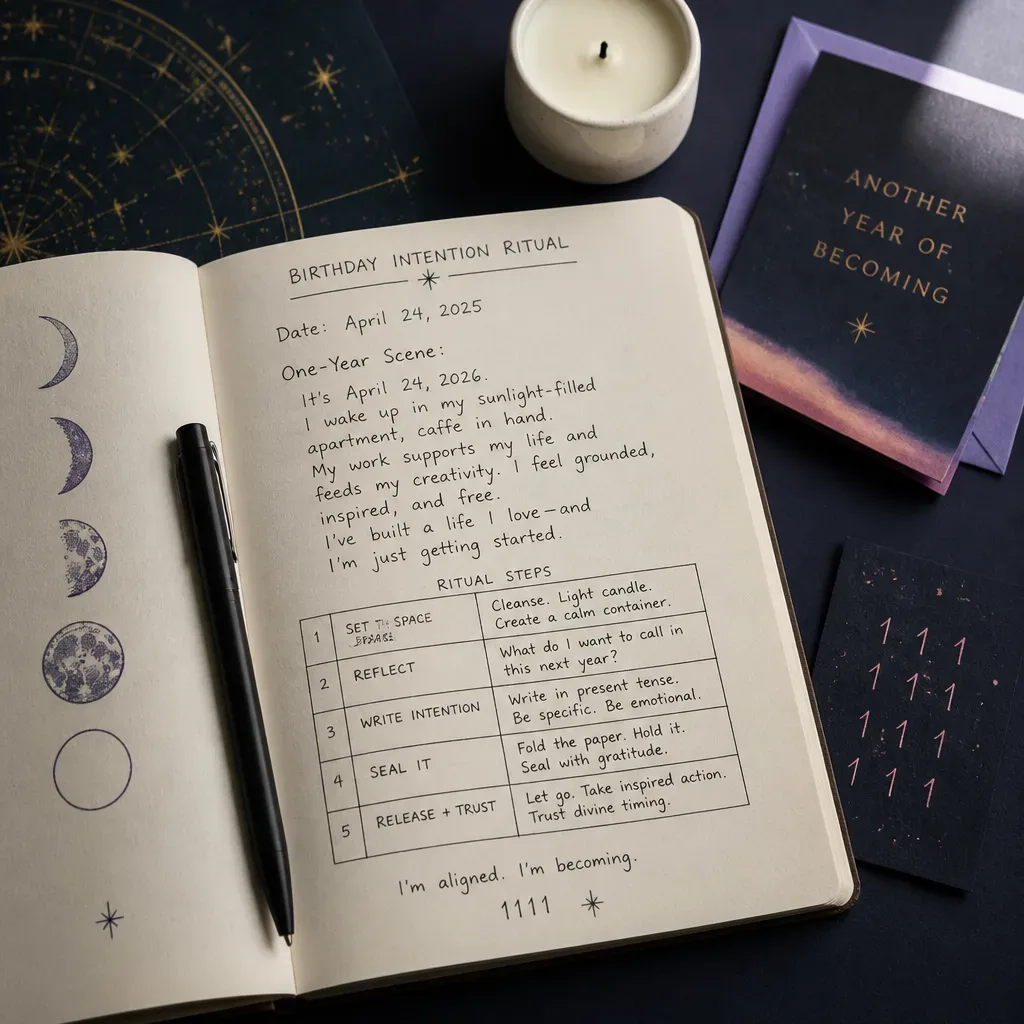 BIRTHDAY INTENTION RITUAL
Date: April 24, 2025
One-Year Scene:
It's April 24, 2026.
I wake up in my sunlight-filled
apartment, caffe in hand.
My work supports my life and
feeds my creativity. I feel grounded,
inspired, and free.
I've built a life I love—and
I'm just getting started.
RITUAL STEPS
1 SET SPACE
Cleanse. Light candle.
Create a calm container.
2 REFLECT
What do I want to call in
this next year?
3 WRITE INTENTION
Write in present tense.
Be specific. Be emotional.
4 SEAL IT
Fold the paper. Hold it.
Seal with gratitude.
5 RELEASE + TRUST
Let go. Take inspired action.
Trust divine timing.
I'm aligned. I'm becoming.
1111
ANOTHER
YEAR OF
BECOMING
1 1 1
1 1 1
1 1 1
1 1 1